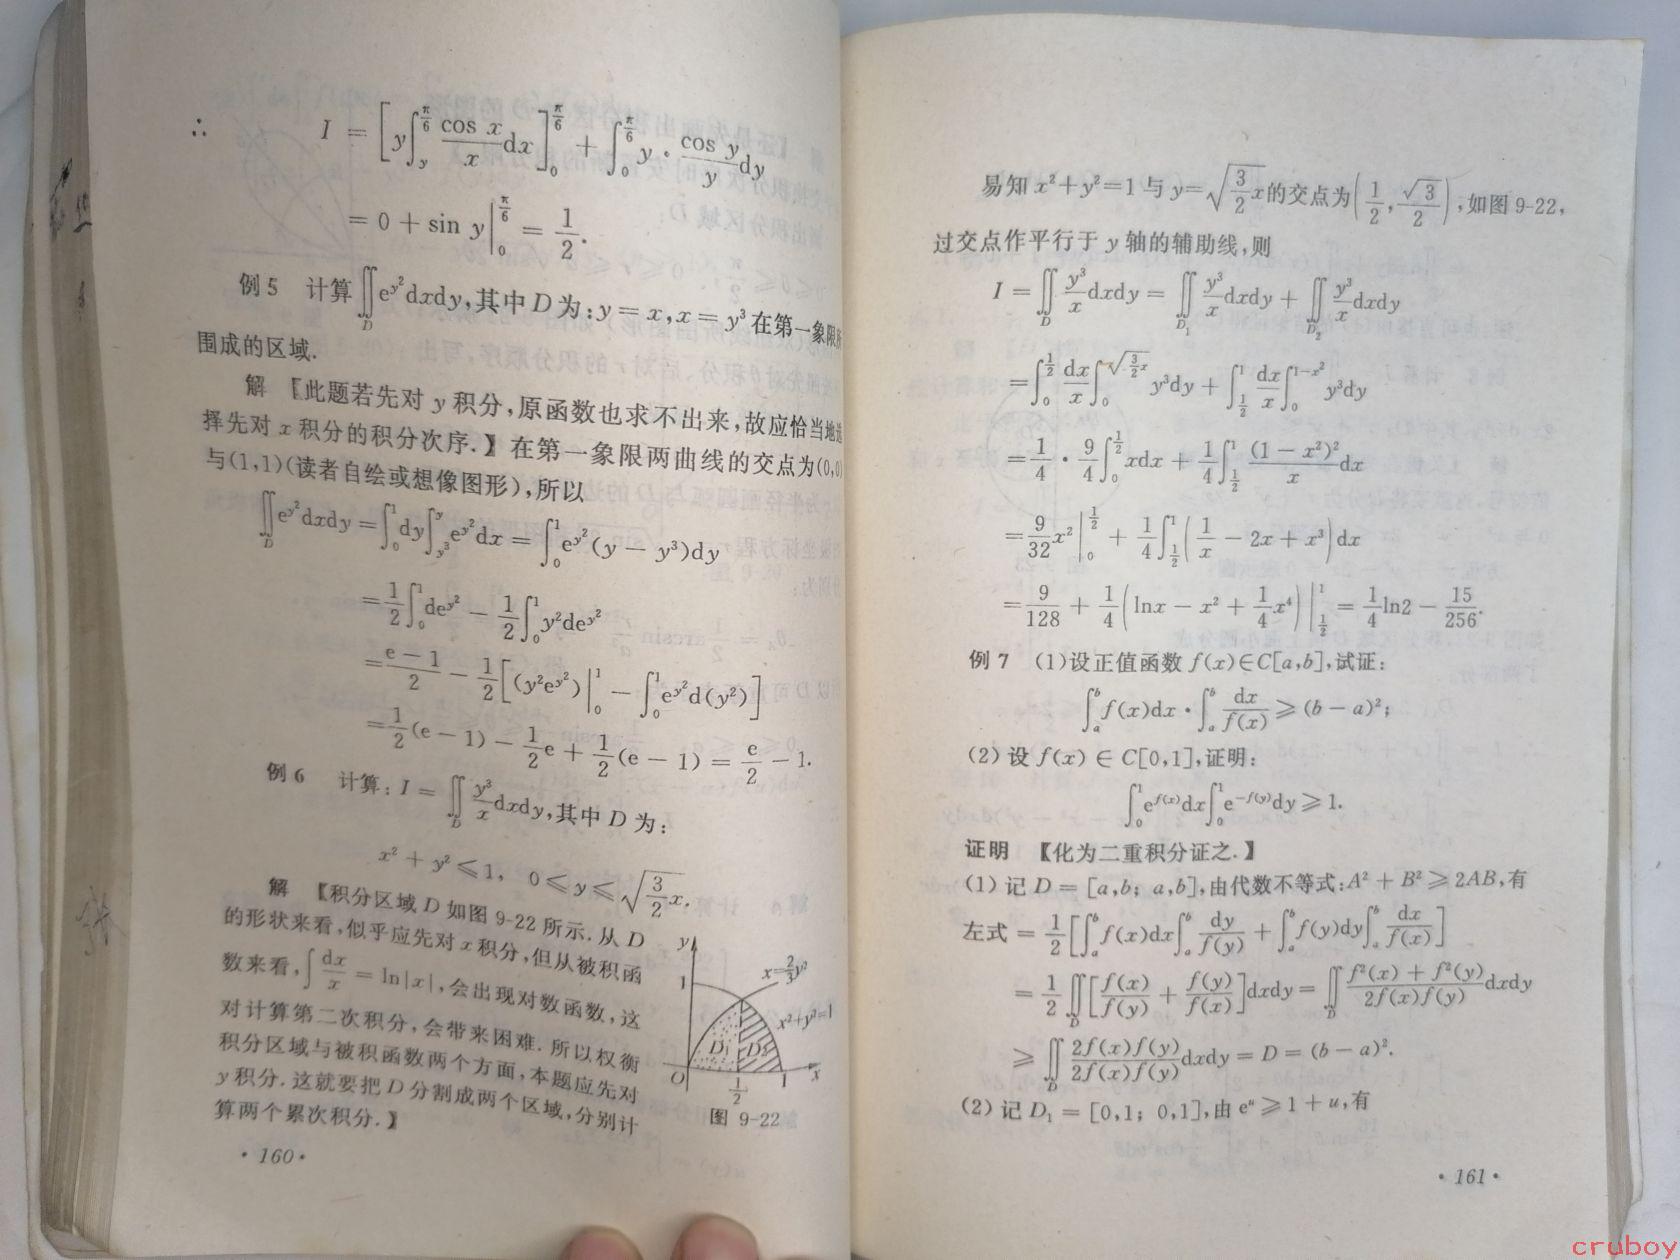 ∴ I = [y∫_y^{π/6} cos x/x dx]_0^{π/6} + ∫_0^{π/6} y · cos y/y dy
= 0 + sin y|_0^{π/6} = 1/2.
例5 计算∬_D e^{y²}dxdy,其中D为:y = x,x = y³在第一象限所
围成的区域.
解 【此题若先对y积分,原函数也求不出来,故应恰当地选
择先对x积分的积分次序.】在第一象限两曲线的交点为(0,0)
与(1,1)(读者自绘或想像图形),所以
∬_D e^{y²}dxdy = ∫_0^1 dy∫_{y³}^y e^{y²}dx = ∫_0^1 e^{y²}(y − y³)dy
= 1/2∫_0^1 de^{y²} − 1/2∫_0^1 y²de^{y²}
= (e − 1)/2 − 1/2[(y²e^{y²})|_0^1 − ∫_0^1 e^{y²}d(y²)]
= 1/2(e − 1) − 1/2e + 1/2(e − 1) = e/2 − 1.
例6 计算:I = ∬_D y³/x dxdy,其中D为:
x² + y² ≤ 1, 0 ≤ y ≤ √(3/2 x).
解 【积分区域D如图9-22所示.从D
的形状来看,似乎应先对x积分,但从被积函
数来看,∫dx/x = ln|x|,会出现对数函数,这
对计算第二次积分,会带来困难.所以权衡
积分区域与被积函数两个方面,本题应先对
y积分.这就要把D分割成两个区域,分别计
算两个累次积分.】
y
1
x=2/3y²
x²+y²=1
D₁
D₂
O
1/2
1
x
图 9-22
·160·
易知x²+y²=1与y=√(3/2)x的交点为(1/2,√3/2),如图9-22,
过交点作平行于y轴的辅助线,则
I = ∬_D y³/x dxdy = ∬_{D₁} y³/x dxdy + ∬_{D₂} y³/x dxdy
= ∫_0^{1/2} dx/x ∫_0^{√(3/2 x)} y³dy + ∫_{1/2}^1 dx/x ∫_0^{1−x²} y³dy
= 1/4 · 9/4∫_0^{1/2} xdx + 1/4∫_{1/2}^1 (1 − x²)²/x dx
= 9/32 x²|_0^{1/2} + 1/4∫_{1/2}^1 (1/x − 2x + x³)dx
= 9/128 + 1/4(lnx − x² + 1/4x⁴)|_{1/2}^1 = 1/4 ln2 − 15/256.
例7 (1)设正值函数f(x)∈C[a,b],试证:
∫_a^b f(x)dx · ∫_a^b dx/f(x) ≥ (b − a)²;
(2)设f(x) ∈ C[0,1],证明:
∫_0^1 e^{f(x)}dx∫_0^1 e^{−f(y)}dy ≥ 1.
证明 【化为二重积分证之.】
(1)记D = [a,b; a,b],由代数不等式:A² + B² ≥ 2AB,有
左式 = 1/2[∫_a^b f(x)dx∫_a^b dy/f(y) + ∫_a^b f(y)dy∫_a^b dx/f(x)]
= 1/2∬_D [f(x)/f(y) + f(y)/f(x)]dxdy = ∬_D (f²(x) + f²(y))/(2f(x)f(y)) dxdy
≥ ∬_D 2f(x)f(y)/2f(x)f(y) dxdy = D = (b − a)².
(2)记D₁ = [0,1; 0,1],由eᵘ ≥ 1 + u,有
·161·
cruboy